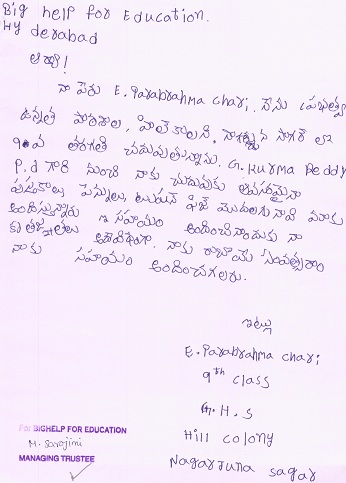 Big help for Education.
Hy derabad
ఆర్యా!
నా పేరు E. Parabrahma chari. నేను ప్రభుత్వ
ఉన్నత పాఠశాల, హిల్ కాలని, నాగార్జున సాగర్ లో
9వ తరగతి చదువుతున్నాను. G. Kurma Reddy
P.d గారి నుంచి నాకు చదువుకు అవసరమైన
పుస్తకాలు పెన్నులు, ట్యుషన్ ఫిజ్ మొదలగునావి మాకు
అందిస్తున్నారు ఈ సహాయం అందించినందుకు నా
కృతజ్ఞతలు. నాకు రాబోయే సంవత్సరం
నాకు సహాయం అందించగలరు.
ఇట్లు
E. Parabrahma chari
9th class
G. H. S
Hill colony
Nagarjuna sagar
For BIGHELP FOR EDUCATION
M. Sarojini
MANAGING TRUSTEE